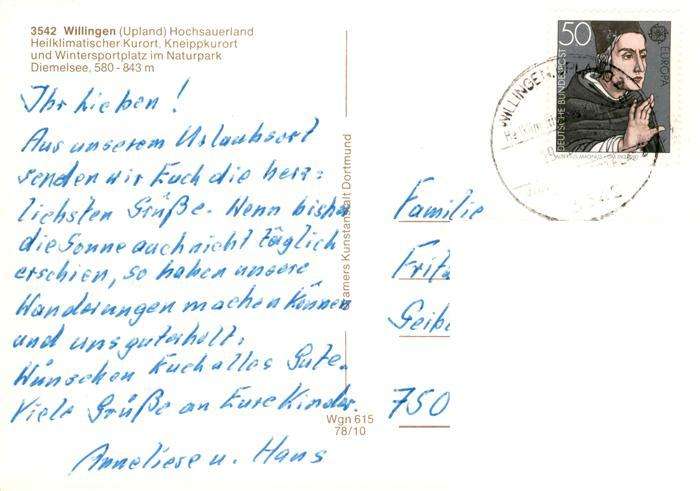 3542 Willingen (Upland) Hochsauerland
Heilklimatischer Kurort, Kneippkurort
und Wintersportplatz im Naturpark
Diemelsee, 580 - 843 m
Ihr Lieben!
Aus unserem Urlaubsort
senden wir Euch die herz=
lichsten Grüße. Wenn bisher
die Sonne auch nicht täglich
erschien, so haben unsere
Wanderungen machen können
und uns gut erholt.
Wünschen Euch alles Gute.
Viele Grüße an Eure Kinder.
Anneliese u. Hans
Cramers Kunstanstalt Dortmund
Wgn 615
78/10
50
EUROPA
DEUTSCHE BUNDESPOST
WILLINGEN
Familie
Fritz
Geib
750